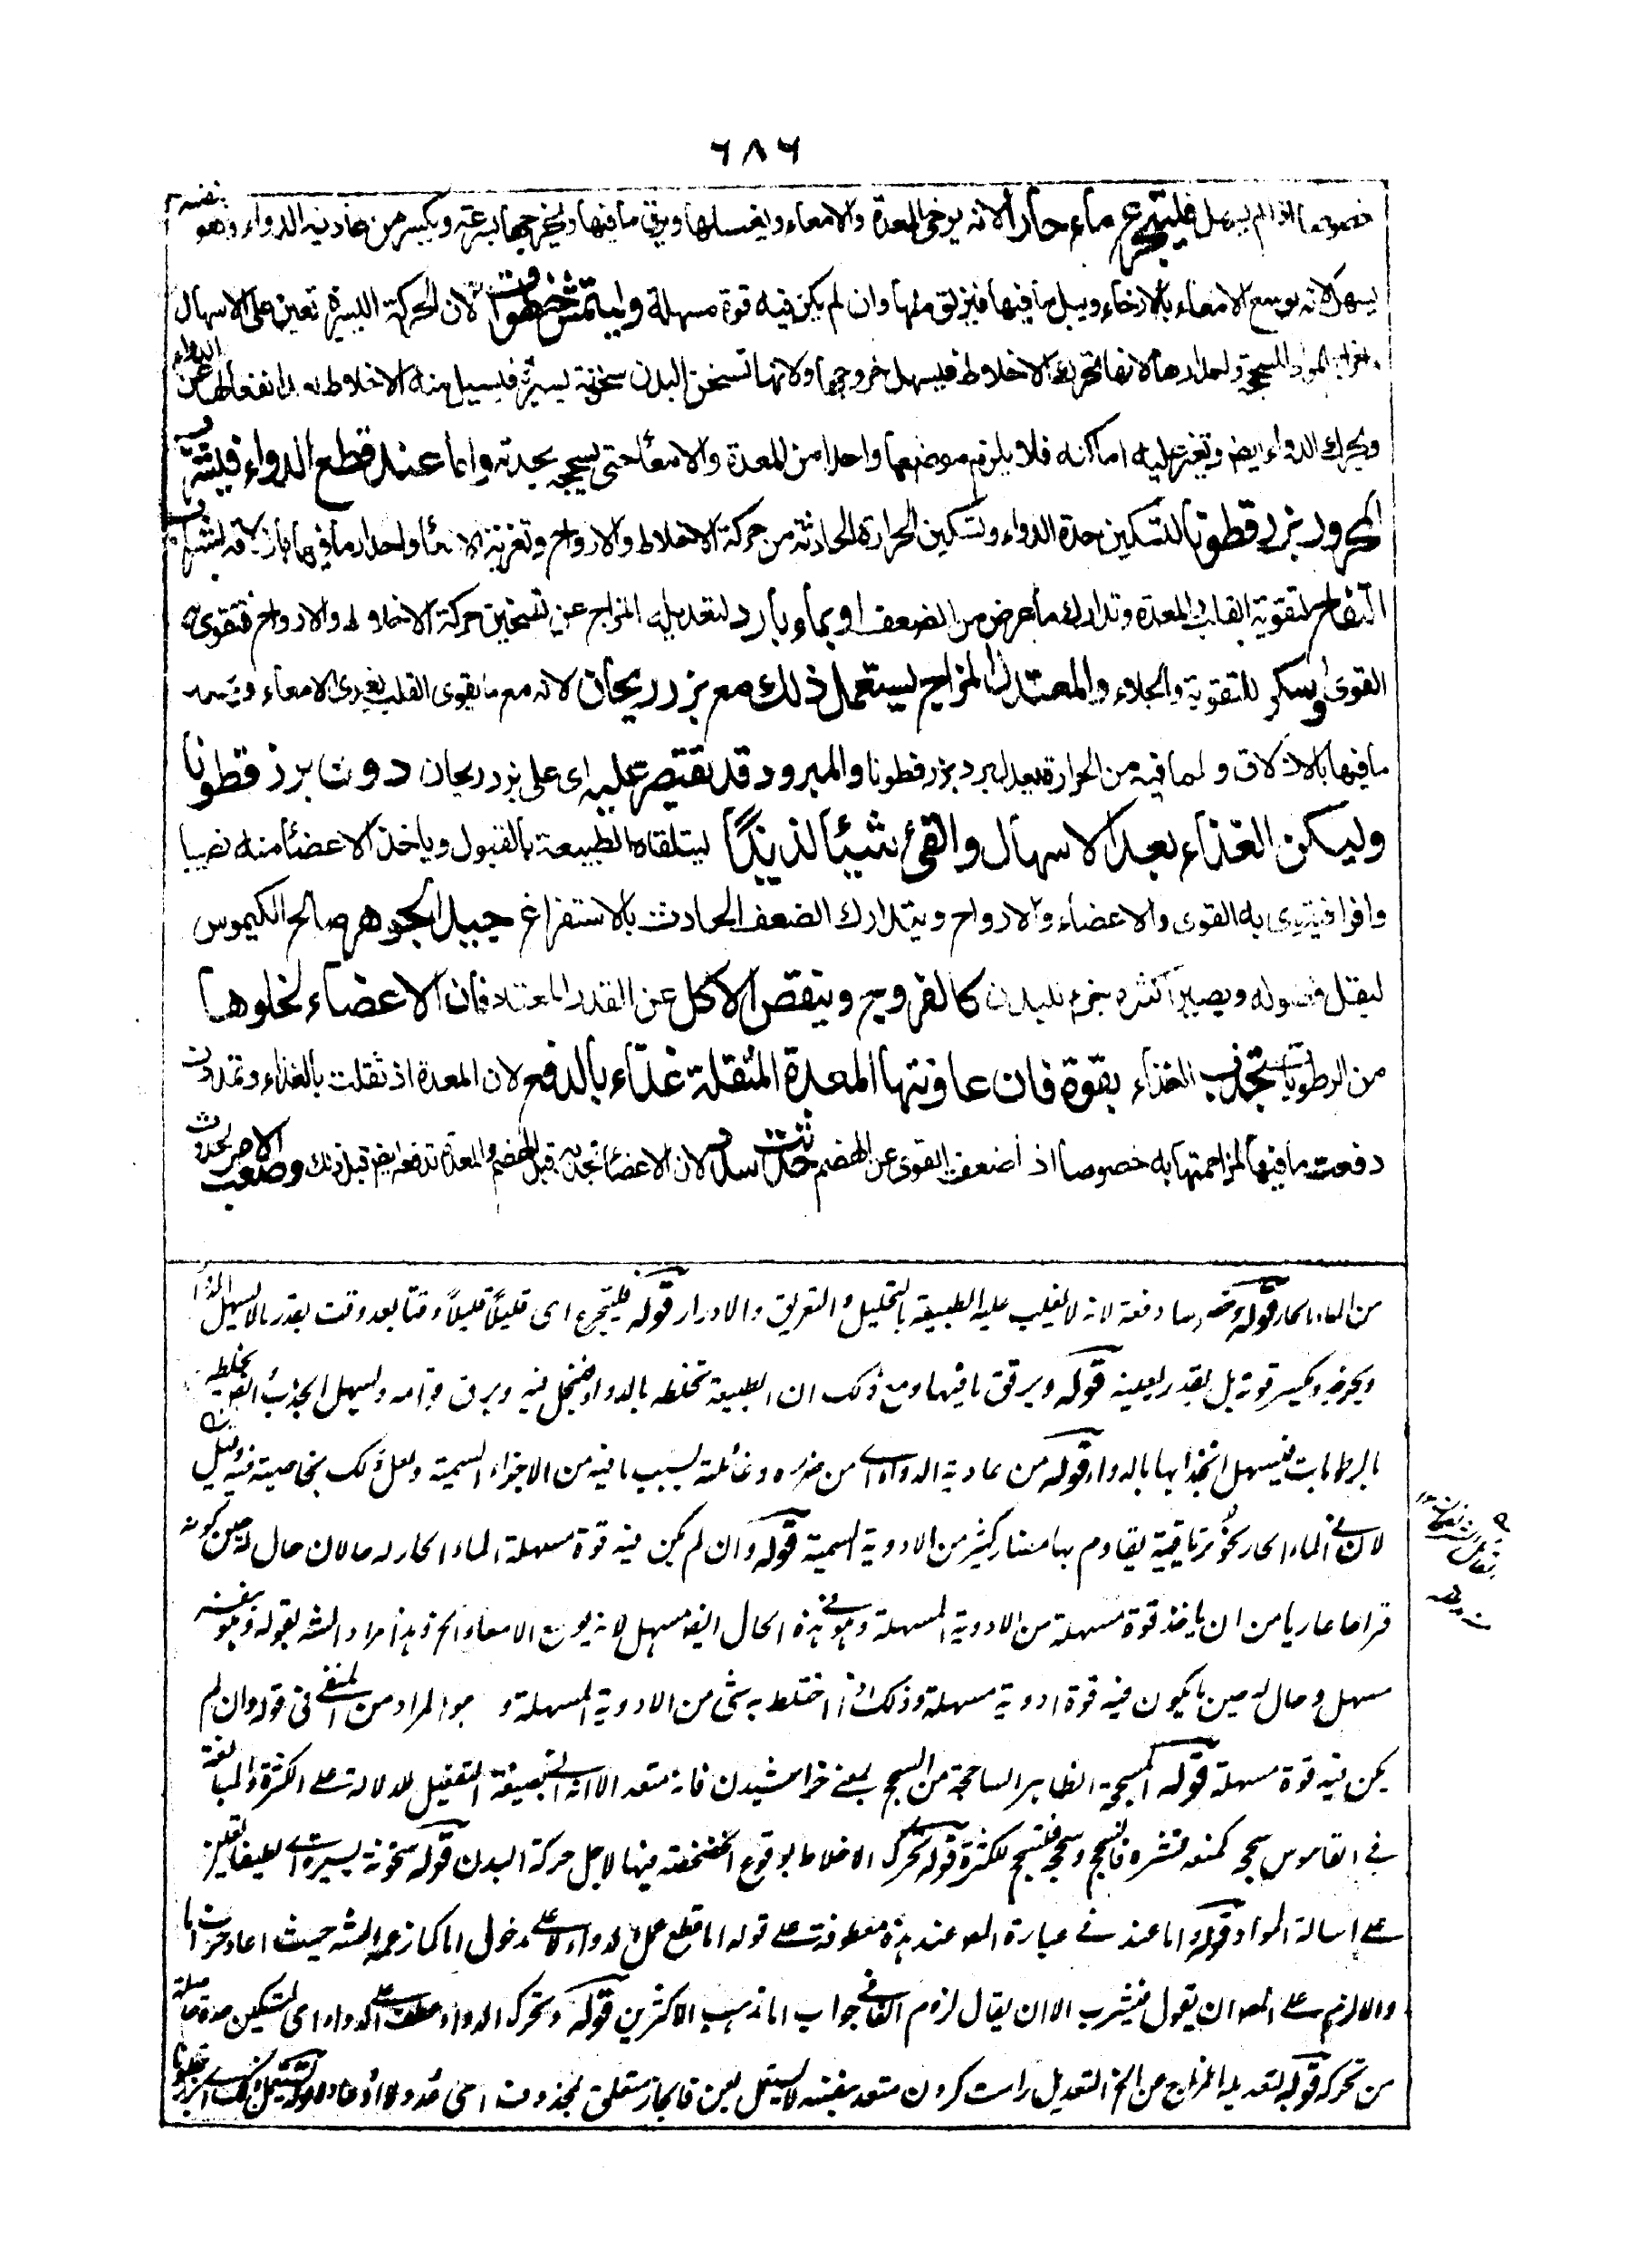 ٦٨٦
خصوصا اذا لم يسهل فليتجرع ماء حارا لانه يرخى المعدة والامعاء ويغسلها ويرقق ما فيها ويخرجها بسرعة ويكسر من عادية الدواء وهو بنفسه
يسهل لانه يوسع الامعاء بالارخاء ويبل ما فيها فينزلق منها وان لم يكن فيه قوة مسهلة وليتمش خطوات لان الحركة اليسيرة تعين على الاسهال
المواد المسحجة وانحدارها لانها تحرك الاخلاط فيسهل خروجها ولانها تسخن البدن سخونة يسيرة فيسيل منه الاخلاط انفعالها عن الدواء
ويحرك الدواء ايضا وتغير عليه اماكنه فلا يلزم موضعا واحدا من المعدة والامعاء حتى يسحجه بحدته واما عند قطع الدواء فليشرب
المحرور بزر قطونا لتسكين حدة الدواء وتسكين الحرارة الحادثة من حركة الاخلاط والارواح وتغرية الامعاء وانحدار ما فيها بازلاقه بشراب
التفاح لتقوية القلب والمعدة وتدارك ما عرض من الضعف او بماء بارد لتعديله المزاج عن تسخين حركة الاخلاط والارواح فتقوى به
القوى وسكر للتقوية والجلاء والمعتدل المزاج ليستعمل ذلك مع بزر ريحان لانه مع ما يقوى القلب يغرى الامعاء
ما فيها بالازلاق ولما فيه من الحرارة يعدل برد بزر قطونا والمبرود قد يقتصر عليه اى على بزر ريحان دون بزر قطونا
وليكن الغذاء بعد الاسهال والقئ شيئا لذيذا ليتلقاه الطبيعة بالقبول وياخذ الاعضاء منه نصيبا
وافرا فيتقوى به القوى والاعضاء والارواح ويتدارك الضعف الحادث بالاستفراغ جيد الجوهر صالح الكيموس
ليقل فضوله ويصير اكثره جزء للبدن كالفروج وينقص الاكل عن القدر المعتاد فان الاعضاء لخلوها
من الرطوبات تجذب الغذاء بقوة فان عاونتها المعدة المثقلة غذاء بالدفع لان المعدة اذ ثقلت بالغذاء وتمددت
دفعت ما فيها لمزاحمتها به خصوصا اذ اضعفت القوى عن الهضم حدثت سدد لان الاعضاء تجذبه قبل الهضم والمعدة تدفعه ايضا قبل ذلك وصعب الامر لحدوث
من الماء الحار قوله دفعة لانه لا يغلب عليه الطبيعة بالتحليل والتعريق والادرار قوله فليتجرع اى قليلا قليلا وقتا بعد وقت بقدر ما لا يسهل الدواء
ويخرجه ويكسر قوته بل بقدر يعينه قوله ويرقق ما فيها ومع ذلك ان الطبيعة تخلطه بالدواء فينحل فيه ويرق قوامه ويسهل الجذب
بالرطوبات فيسهل انجذابها بالدواء قوله من عادية الدواء اے من ضرره وغائلته بسبب ما فيه من الاجزاء السمية ولعل ذلك بخاصية فيه وقيل
لان فے الماء الحار ترياقية يقاوم بها مضار كثير من الادوية السمية قوله وان لم يكن فيه قوة مسهلة الماء الحار له حالان حال له حين كونه
قراحا عاريا من ان ياخذ قوة مسهلة من الادوية المسهلة وهو فے هذه الحال ايضا مسهل لانه يوسع الامعاء الخ وهذا مراد الشه بقوله وهو بنفسه
مسهل وحال له حين ما يكون فيه قوة ادوية مسهلة وذلك اذا اختلط به شئ من الادوية المسهلة وهو المراد من المنفى فى قوله وان لم
يكن فيه قوة مسهلة قوله المسحجة الظاهر الساحجة من السحج بمعنے خراشيدن فانه متعد الا انه اتى بصيغة التفعيل للدلالة علے الكثرة والمبالغة
فے القاموس سحجه كمنعه قشره فانسحج وسحجه فتسحج للكثرة قوله تحرك الاخلاط لوقوع الخضخضة فيها لاجل حركة البدن قوله سخونة يسيرة اے لطيفة تعين
علے اسالة المواد قوله واما عند فے عبارة المصه عند هذه معطوفة علے قوله اما قطع عمل الدواء لا علے مدخول اما كما زعمه الشه حيث اعاد حرف اما
والالزم علے المصه ان يقول فيشرب الا ان يقال لزوم الفاء فے جواب اما مذهب الاكثرين قوله وتحرك الدواء عطف علے الدواء اى لتسكين حدة حاصلة
من تحركه قوله لتعديله المزاج عن الخ التعديل راست كردن متعد بنفسه لا يستعمل بعن فالجار متعلق بمحذوف